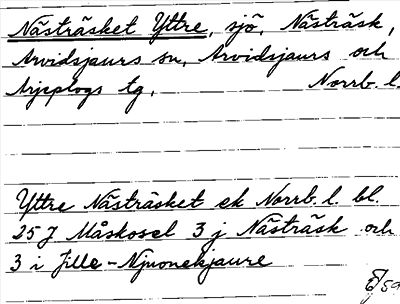 Nästräsket Yttre, sjö, Nästräsk,
Arvidsjaurs sn, Arvidsjaurs och
Arjeplogs tg, Norrb. l.
Yttre Nästräsket ek Norrb. l. bl.
25 J Måskosel 3 j Nästräsk och
3 i Jille-Njuonekjaure